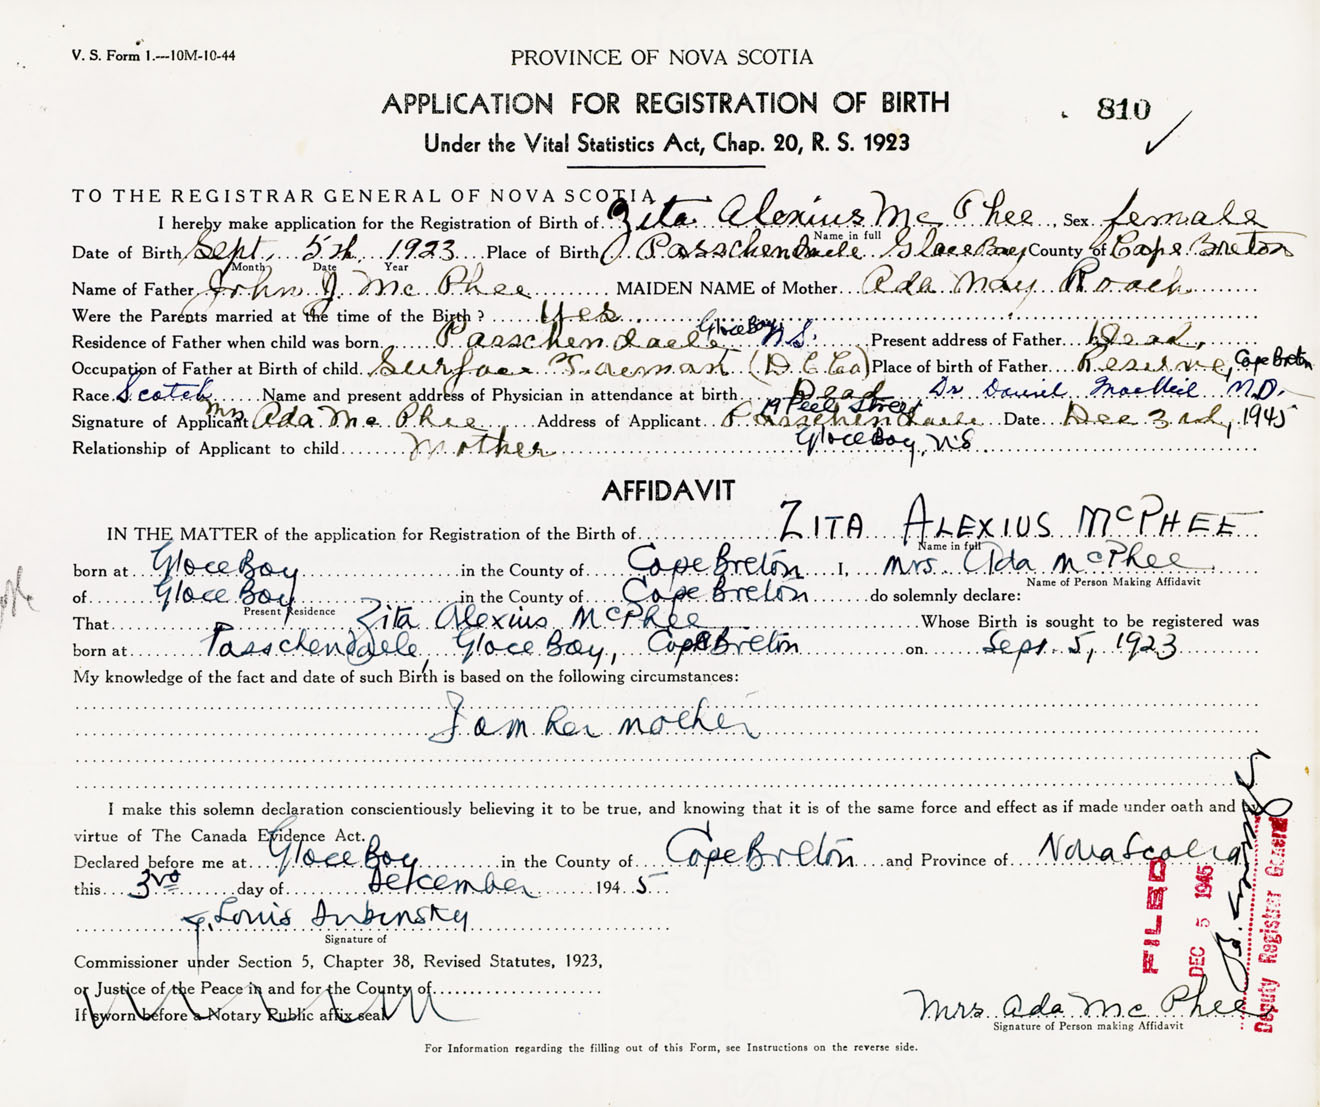 V. S. Form 1.—10M-10-44
PROVINCE OF NOVA SCOTIA
APPLICATION FOR REGISTRATION OF BIRTH
810
Under the Vital Statistics Act, Chap. 20, R. S. 1923
TO THE REGISTRAR GENERAL OF NOVA SCOTIA
I hereby make application for the Registration of Birth of Zita Alexius Mc Phee, Sex female
Name in full
Date of Birth Sept. 5th, 1923 Place of Birth Passchendaele Glace Bay County of Cape Breton
Month Date Year
Name of Father John J. Mc Phee MAIDEN NAME of Mother Ada May Roach
Were the Parents married at the time of the Birth? Yes
Residence of Father when child was born Passchendaele Glace Bay N.S. Present address of Father Dead,
Occupation of Father at Birth of child. Surface (D.C.Co) Place of birth of Father Reserve, Cape Breton
Race Scotch Name and present address of Physician in attendance at birth Dead Dr Daniel MacNeil M.D.
Signature of Applicant Mrs Ada Mc Phee Address of Applicant Passchendaele 19 Peel Street Date Dec 3rd, 1945
Glace Bay, N.S.
Relationship of Applicant to child Mother
AFFIDAVIT
IN THE MATTER of the application for Registration of the Birth of ZITA ALEXIUS MCPHEE
Name in full
born at Glace Bay in the County of Cape Breton I, Mrs. Ada McPhee
Name of Person Making Affidavit
of Glace Bay in the County of Cape Breton do solemnly declare:
Present Residence
That Zita Alexius McPhee Whose Birth is sought to be registered was
born at Passchendaele, Glace Bay, Cape Breton on Sept. 5, 1923
My knowledge of the fact and date of such Birth is based on the following circumstances:
I am her mother
I make this solemn declaration conscientiously believing it to be true, and knowing that it is of the same force and effect as if made under oath and by
virtue of The Canada Evidence Act.
Declared before me at Glace Bay in the County of Cape Breton and Province of Nova Scotia
this 3rd day of December 1945
Louis Dubinsky
Signature of
Commissioner under Section 5, Chapter 38, Revised Statutes, 1923,
or Justice of the Peace in and for the County of
If sworn before a Notary Public affix seal
FILED
DEC 5 1945
Deputy Registrar General
Mrs. Ada Mc Phee
Signature of Person making Affidavit
For Information regarding the filling out of this Form, see Instructions on the reverse side.